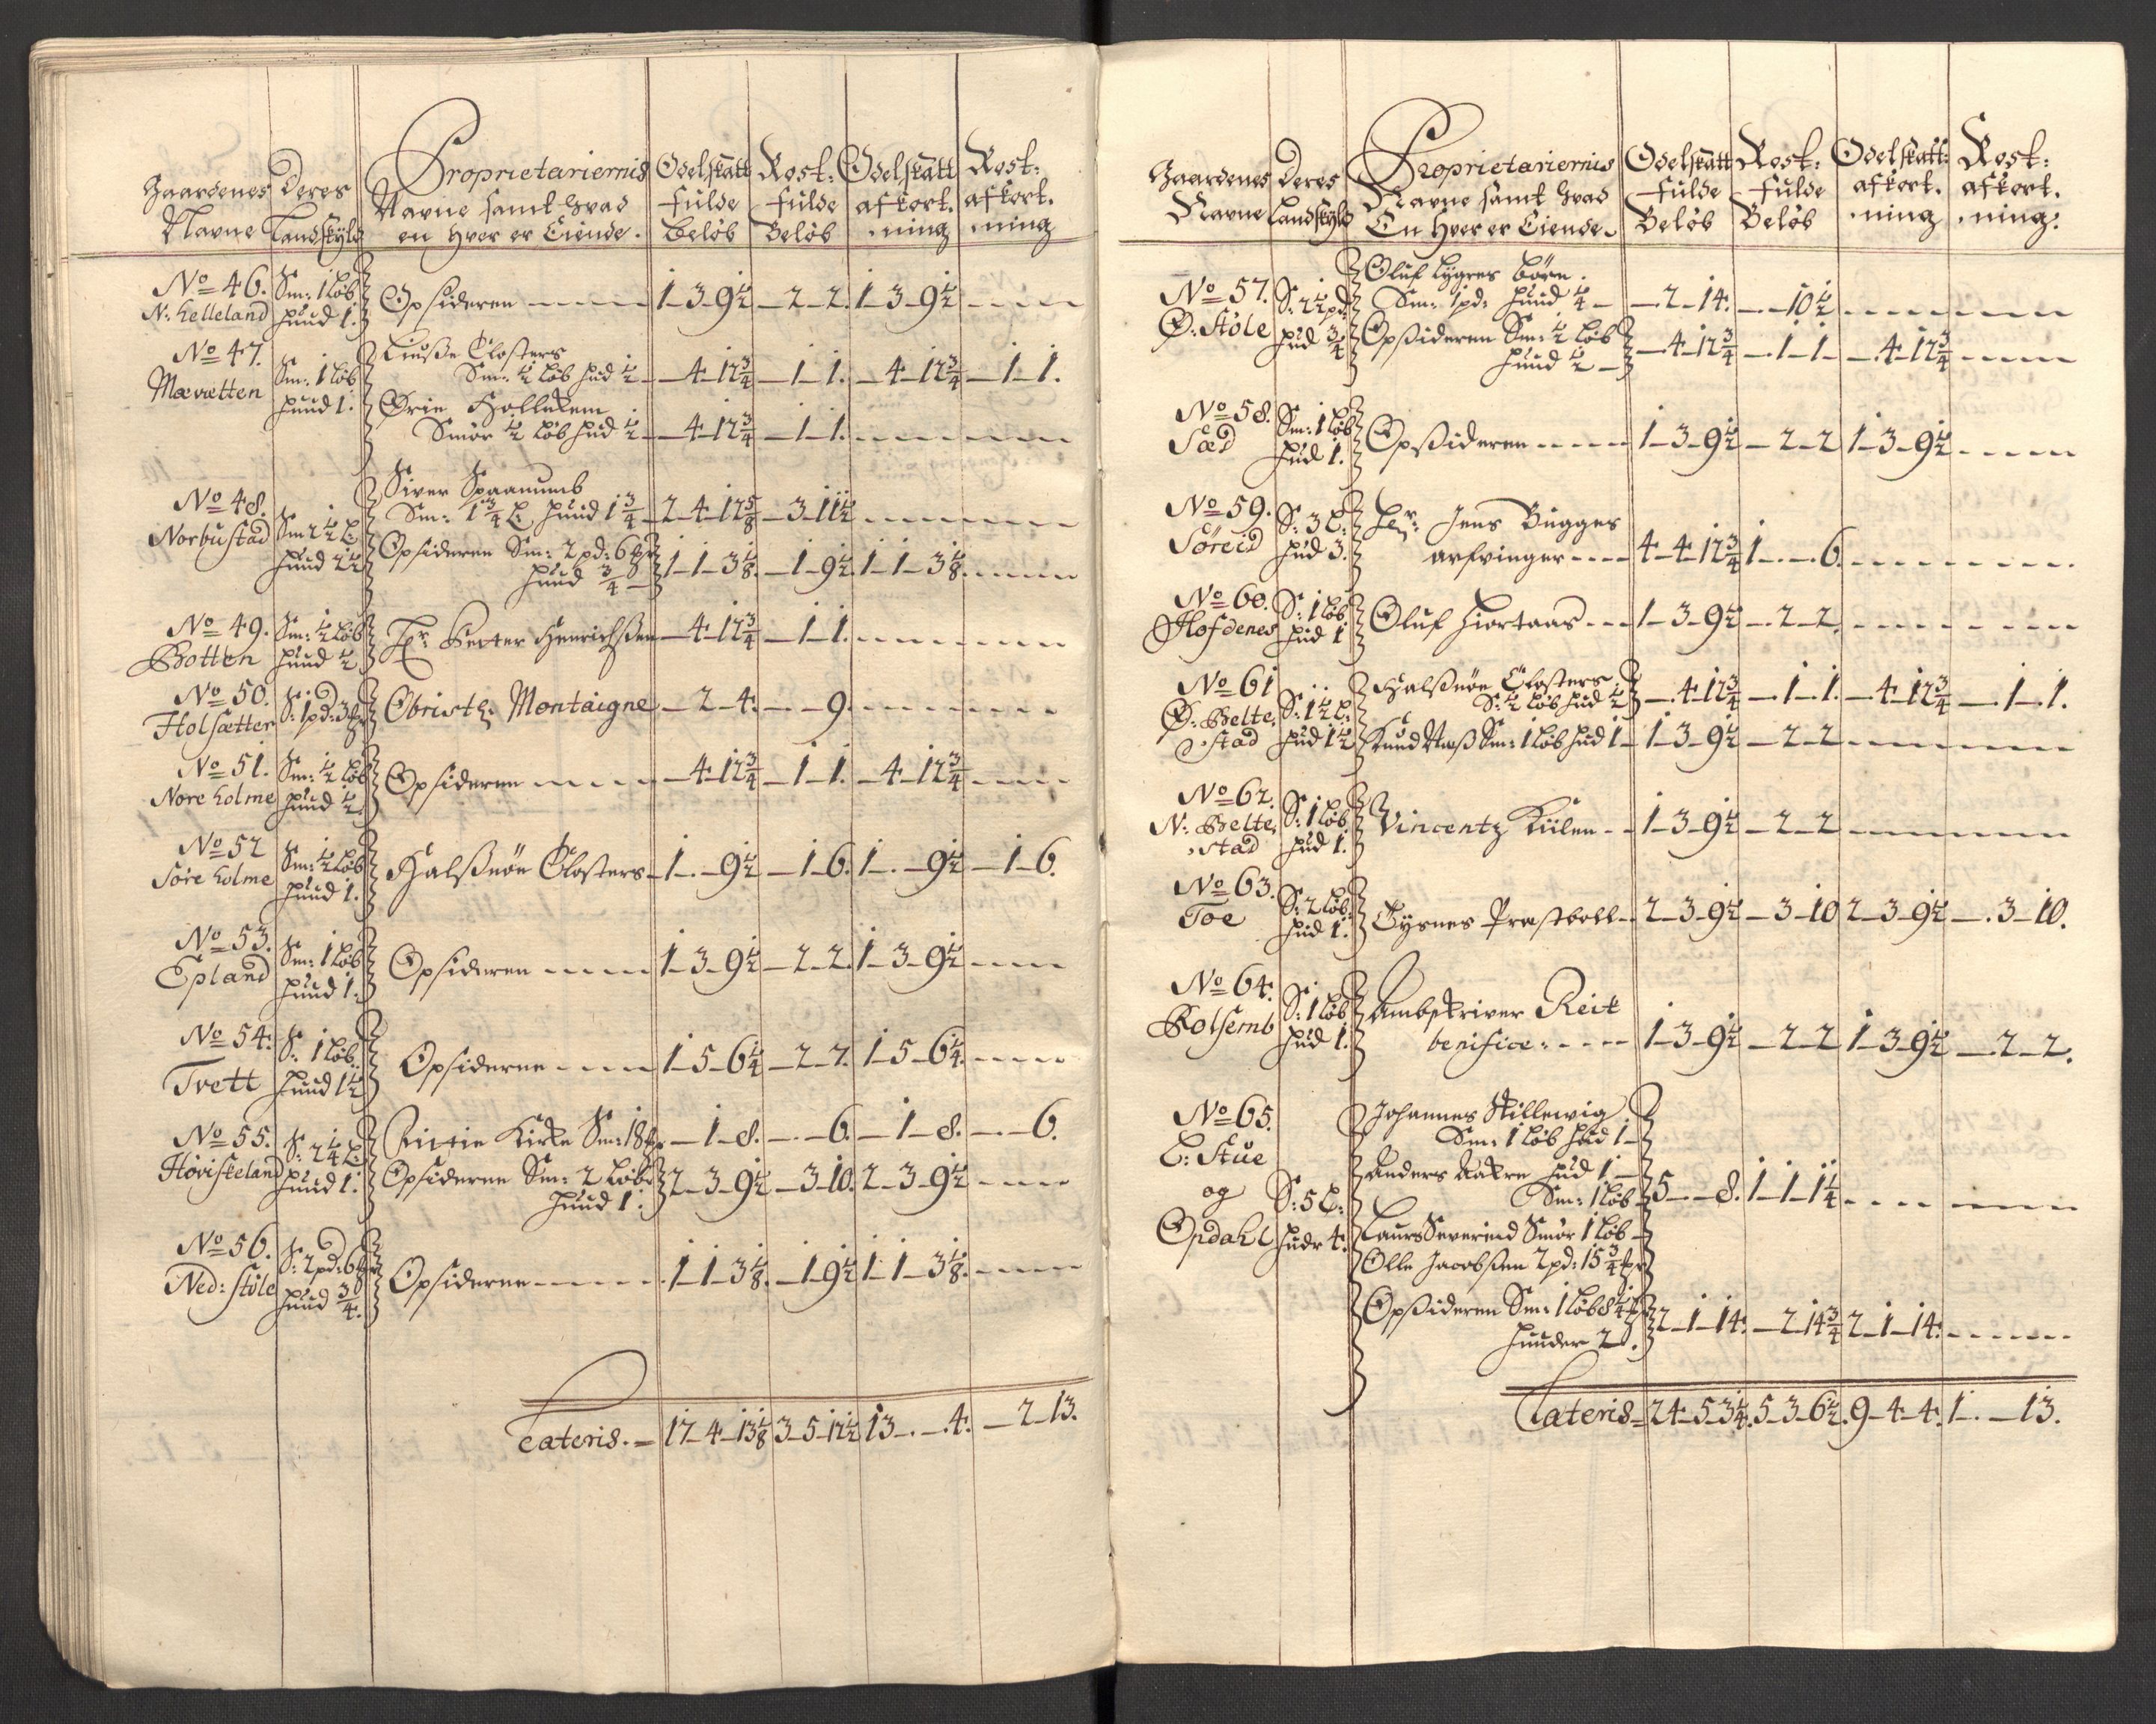 Gaardenes Nafne | Deres Landskÿld | Proprietariernis Nafne samt hvad en hver er Eiende. | Odelskatt fulde beløb | Rost: fulde Beløb | Odelskatt afkort. ning | Rost: afkort. ning
No 46. N: Helleland | Sm: 1 løb huud 1. | Opsideren | 1-3-9½ | -2-2. | 1-3-9½
No 47. Mævætten | Sm: 1 løb huud 1. | Liusse Closters
Sm: ½ løb hud ½ | -4-12¾ | -1-1. | -4-12¾ | -1-1.
Ørie
Smør ½ løb hud ½ | -4-12¾ | -1-1.
No 48. Norbustad | Sm 2½ L: huud 2½ | Siver Spaanumb
Sm: 1¾ L: huud 1¾ | 2-4-12⅝ | -3-11½
Opsideren Sm: 2 pd: 6 |
huud ¾ | 1-1-3⅛. | -1-9½ | 1-1-3⅛.
No 49. Botten | Sm: ½ løb huud ½ | Hr Petter Henrichssen | -4-12¾ | -1-1.
No 50. Holsætter | S: 1 pd: 3 | Obristl: Montaigne | -2-4. | --9.
No 51. Nore holme | Sm: ½ løb huud ½ | Opsideren | -4-12¾ | -1-1. | -4-12¾
No 52 Søre holme | Sm: ½ løb huud 1. | Halssnøe Closters | 1-.-9½ | -1-6. | 1-.-9½ | -1-6.
No 53. Epland | Sm: 1 løb huud 1. | Opsideren | 1-3-9½ | -2-2. | 1-3-9½
No 54. Tvett | S: 1 løb huud 1½ | Opsiderne | 1-5-6¼ | -2-7. | 1-5-6¼
No 55. Høviskeland | S: 2¼ L: huud 1. | Kirke Sm: 18 | -1-8. | -.-6. | -1-8. | -.-6.
Opsiderne Sm: 2 løb
huud 1: | 2-3-9½ | -3-10. | 2-3-9½
No 56. Ned: støle | S: 2 pd: 6 huud ¾. | Opsiderne | 1-1-3⅛. | -1-9½ | 1-1-3⅛.
Lateris. | 17-4-13⅛ | 3-5-12½ | 13-.-4. | -2-13.
Gaardenes Nafne | Deres Landskyld | Proprietariernis Nafne samt hvad En hver er Eiende. | Odelskatt fulde Beløb | Rost: fulde Beløb | Odelskatt: afkort. ning | Rost: afkort. ning:
No 57. Ø. Støle | S: 2½ pd: hud ¾ | Oluf Lygres børn.
Sm: 1 pd: huud ¼ | -2-14. | --10½
Opssideren Sm: ½ løb
huud ½ | -4-12¾ | -1-1- | -4-12¾
No 58. Sæd | Sm: 1 løb hud 1. | Opssideren | 1-3-9½ | -2-2 | 1-3-9½
No 59. Søreid | S: 3 L: hud 3. | Hr: Jens Bugges
arfvinger | 4-4-12¾ | 1-.-6.
No 60. Hofdenes | S: 1 løb hud 1 | Oluf Hiortaas | 1-3-9½ | -2-2.
No 61 Ø. Belte, stad | S: 1½ L: hud 1½ | Halssnøe Closters
S: ½ løb hud ½ | -4-12¾ | -1-1. | -4-12¾ | -1-1.
Knud Næss Sm: 1 løb hud 1 | 1-3-9½ | -2-2
No 62. N: Belte, stad | S: 1 løb hud 1. | Vincentz Kiilen | 1-3-9½ | -2-2
No 63. Toe | S: 2 løb: hud 1. | Tysnes Præstboll | 2-3-9½ | -3-10 | 2-3-9½ | -.3-10.
No 64. Rolsemb | S: 1 løb hud 1. | Ambskriver Reit
benifice: | 1-3-9½ | -2-2 | 1-3-9½ | -2-2.
No 65. L: Stue og Opdahl | S: 5 L: hudr 4. | Johannes Stillewig
Sm: 1 løb hud 1
Anders Aakre hud 1.
Sm: 1 løb | 5-.-8. | 1-1-1¼
Laurs Severind Smør 1 løb
Olle Jacobssen 2 pd: 15¾
Opssideren Sm: 1 løb 8¼
huuder 2. | 2-1-14. | -2-14¾ | 2-1-14.
Lateris | 24-5-3¼. | 5-3-6½. | 9-4-4. | 1-.-13.